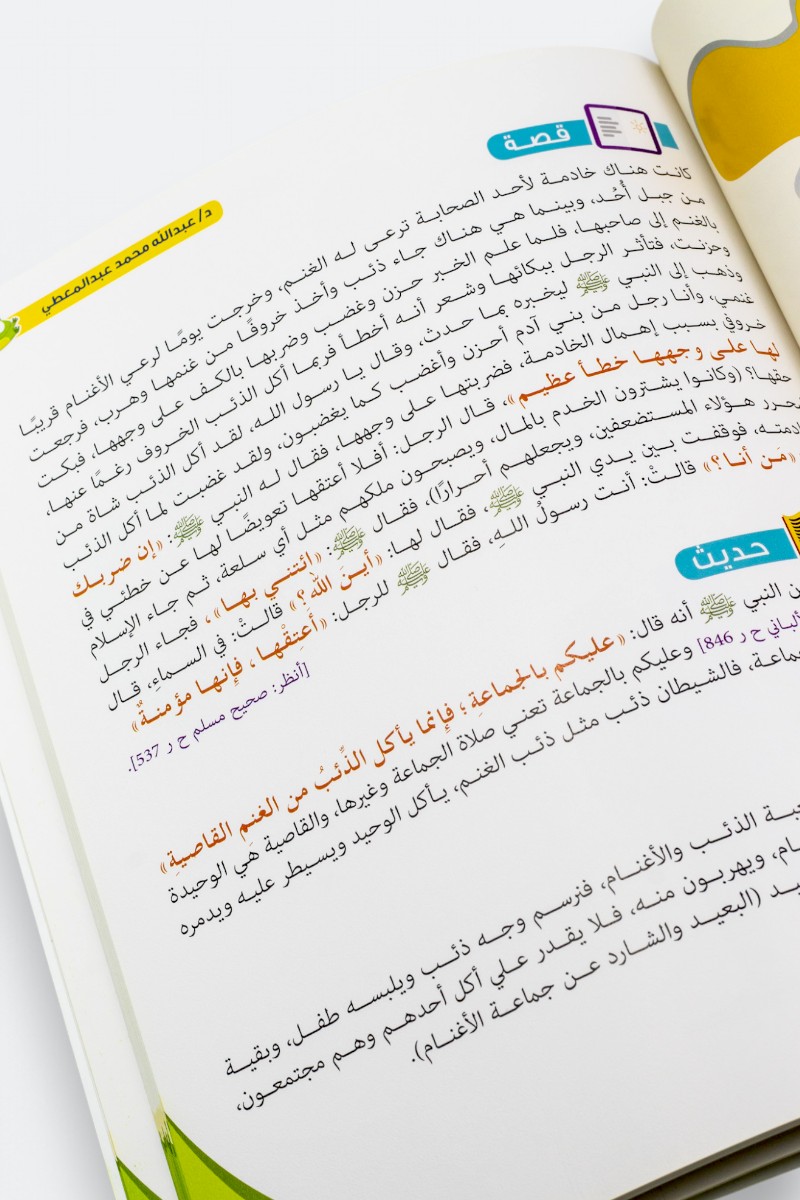 د/ عبدالله محمد عبدالمعطي
قصة
كانت هناك خادمة لأحد الصحابة ترعى له الغنم، وخرجت يومًا لرعي الأغنام قريبًا
من جبل أُحُد، وبينما هي هناك جاء ذئب وأخذ خروفًا من غنمها وهرب، فرجعت
بالغنم إلى صاحبها، فلما علم الخبر حزن وغضب وضربها بالكف على وجهها، فبكت
وحزنت، فتأثر الرجل ببكائها وشعر أنه أخطأ فربما أكل الذئب الخروف رغمًا عنها،
وذهب إلى النبي ﷺ ليخبره بما حدث، وقال يا رسول الله، لقد أكل الذئب شاة من
غنمي، وأنا رجل من بني آدم أحزن وأغضب كما يغضبون، ولقد غضبت لما أكل الذئب
خروفي بسبب إهمال الخادمة، فضربتها على وجهها، فقال له النبي ﷺ: «إن ضربك
لها على وجهها خطأ عظيم»، قال الرجل: أفلا أعتقها تعويضًا لها عن خطئي في
حقها؟ (وكانوا يشترون الخدم بالمال، ويصبحون ملكهم مثل أي سلعة، ثم جاء الإسلام
هؤلاء المستضعفين، ويجعلهم أحرارًا)، فقال ﷺ: «ائتني بها»، فجاء الرجل
فوقفت بين يدي النبي ﷺ، فقال لها: «أينَ اللهُ؟» قالتْ: في السماءِ، قال
«مَن أنا؟» قالتْ: أنت رسولُ اللهِ، فقال ﷺ للرجل: «أَعتِقْها، فإنها مؤمنةٌ»
[أنظر: صحيح مسلم ح ر 537].
حديث
النبي ﷺ أنه قال: «عليكم بالجماعةِ؛ فإنما يأكل الذِّئبُ من الغنمِ القاصيةِ»
ح ر 846] وعليكم بالجماعة تعني صلاة الجماعة وغيرها، والقاصية هي الوحيدة
فالشيطان ذئب مثل ذئب الغنم، يأكل الوحيد ويسيطر عليه ويدمره
الذئب والأغنام، فنرسم وجه ذئب ويلبسه طفل، وبقية
ويهربون منه، فلا يقدر علي أكل أحدهم وهم مجتمعون،
(البعيد والشارد عن جماعة الأغنام).